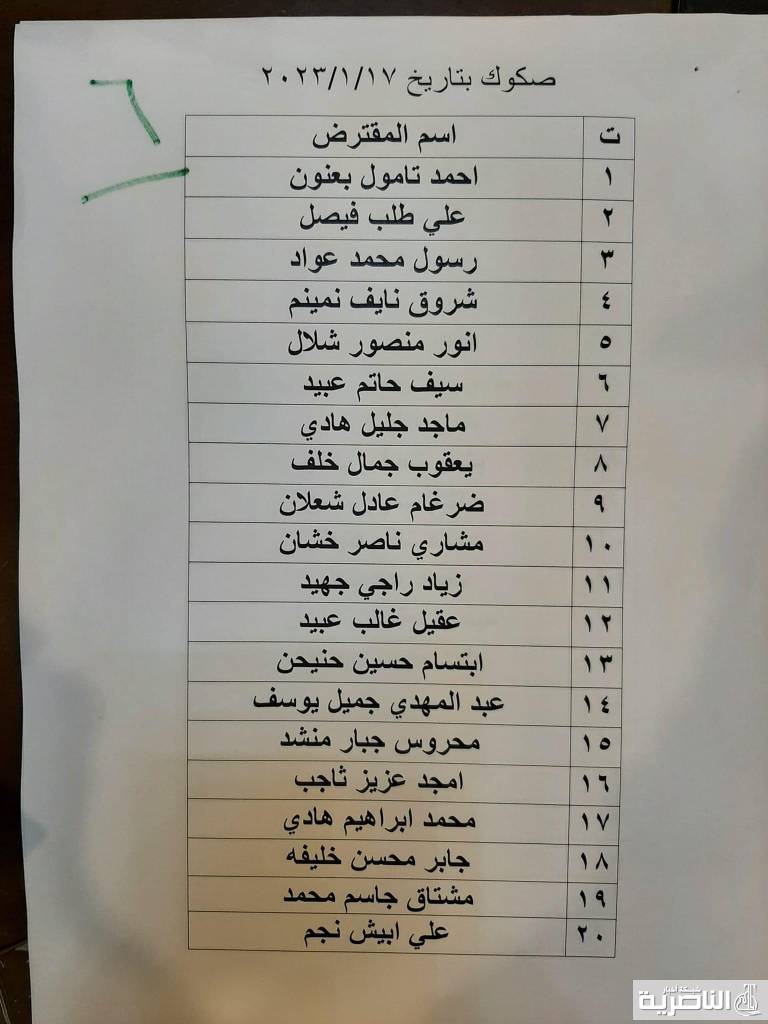 صكوك بتاريخ ٢٠٢٣/١/١٧
ت اسم المقترض
١ احمد تامول بعنون
٢ علي طلب فيصل
٣ رسول محمد عواد
٤ شروق نايف نمينم
٥ انور منصور شلال
٦ سيف حاتم عبيد
٧ ماجد جليل هادي
٨ يعقوب جمال خلف
٩ ضرغام عادل شعلان
١٠ مشاري ناصر خشان
١١ زياد راجي جهيد
١٢ عقيل غالب عبيد
١٣ ابتسام حسين حنيحن
١٤ عبد المهدي جميل يوسف
١٥ محروس جبار منشد
١٦ امجد عزيز ثاجب
١٧ محمد ابراهيم هادي
١٨ جابر محسن خليفه
١٩ مشتاق جاسم محمد
٢٠ علي ابيش نجم
٦
شبكة أخبار
الناصرية